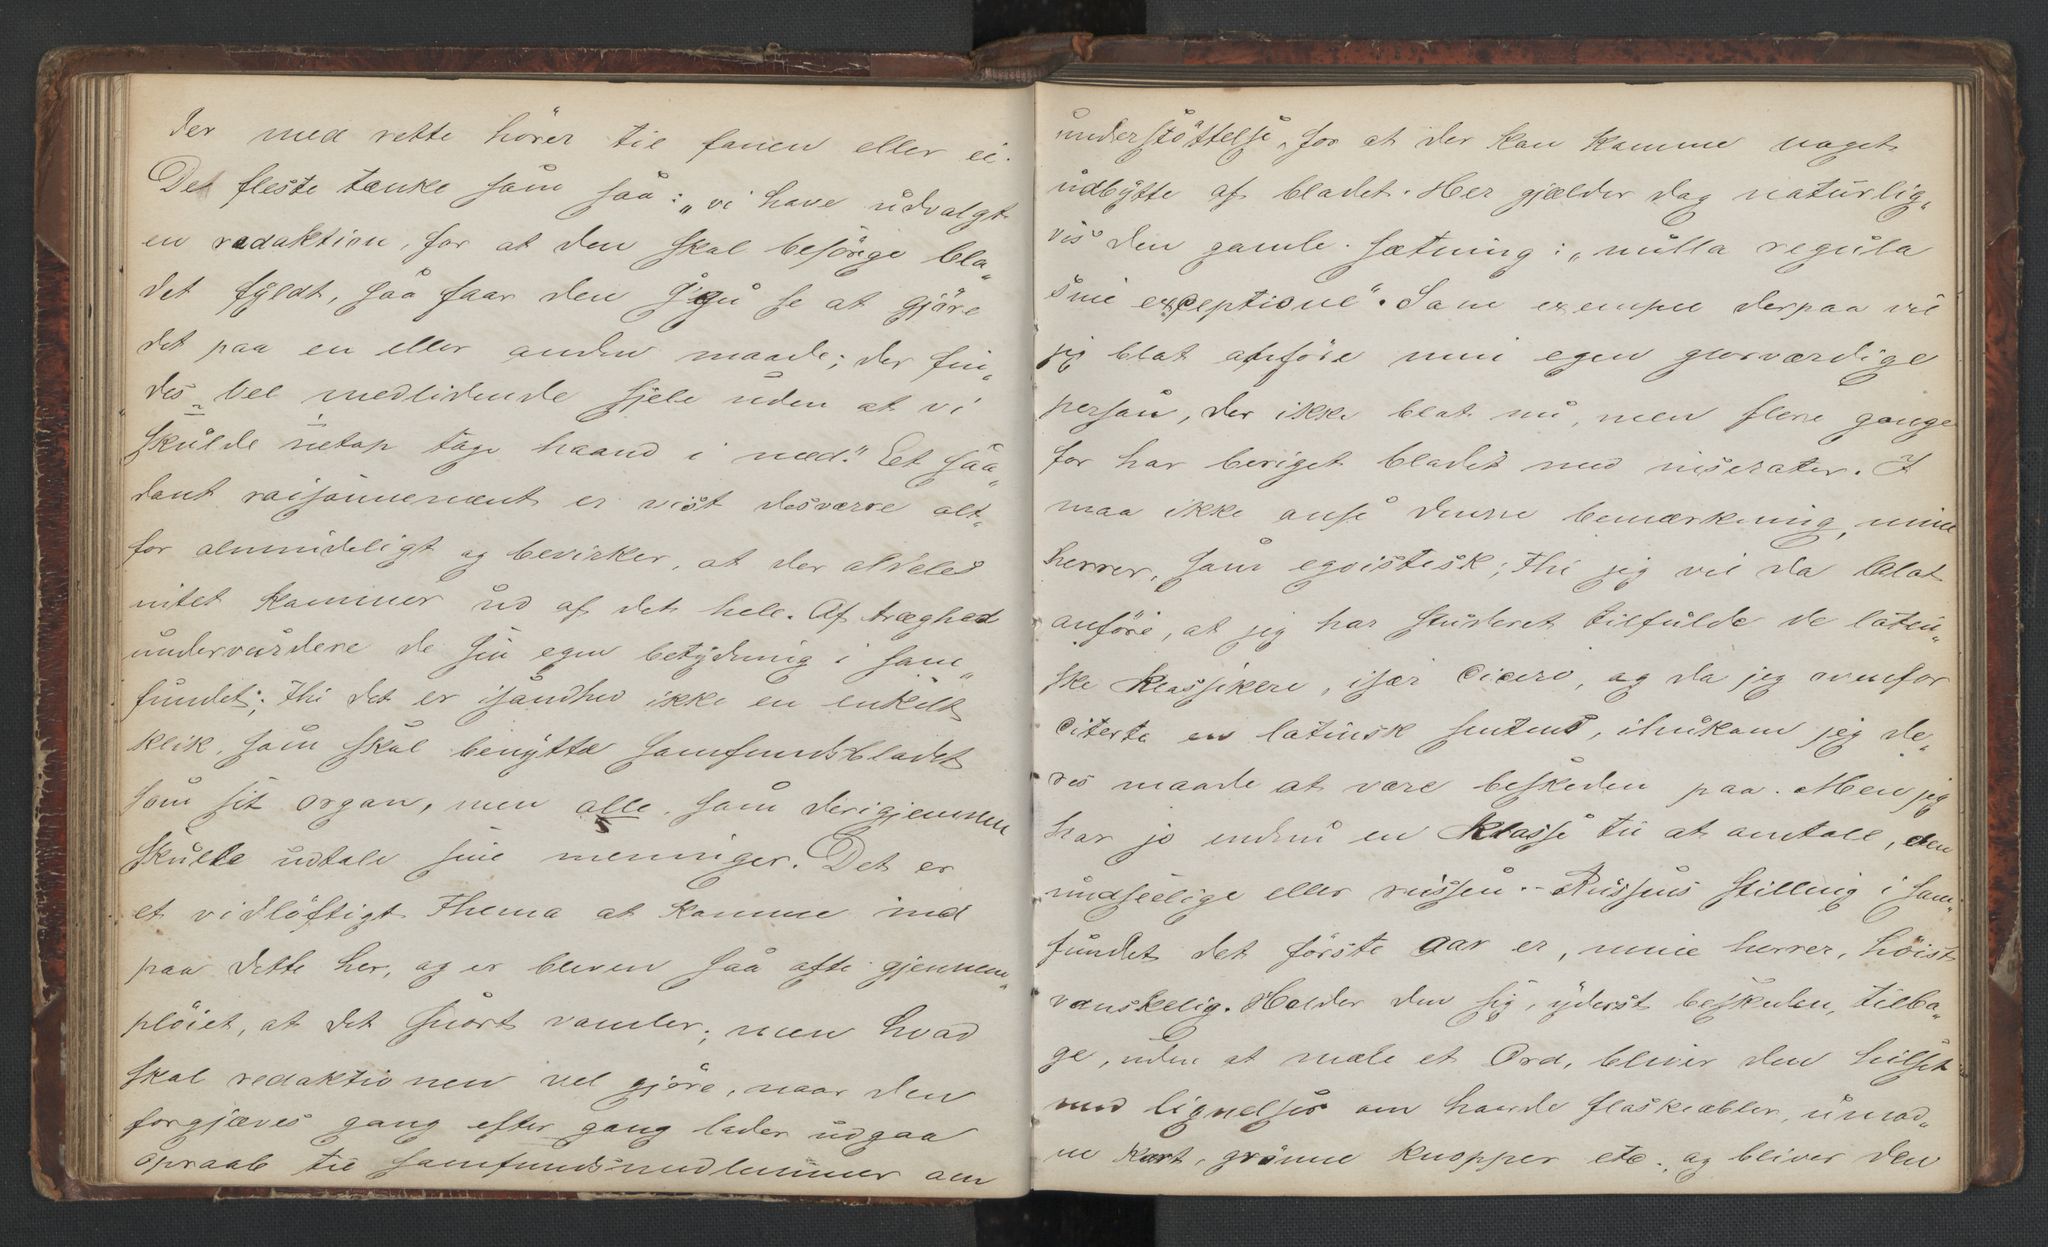 der med rette hører til fanen eller ei.
De fleste tænke som saa: „vi have udvalgt
en redaktion, for at den skal besørge bla„
det fyldt, saa faar den s'gu se at gjøre
det paa en eller anden maade; der fin„
des vel medlidende sjele uden at vi
skulde netop tage haand i med." Et saa„
dant raisonnement er vist desværre alt„
for almindeligt og bevirker, at der aldeles
intet kommer ud af det hele. Af træghed
undervurdere de sin egen betydning i sam„
fundet; thi det er isandhed ikke en enkelt
klik, som skal benytte samfundsbladet
som sit organ, men alle, som derigjennem
skulle udtale sine meninger. Det er
et vidløftigt Thema at komme ind
paa dette her, og er bleven saa ofte gjennem„
pløiet, at det snart vamler; men hvad
skal redaktionen vel gjøre, naar den
forgjæves gang efter gang lader udgaa
opraab til samfundsmedlemmer om
understøttelse, for at der kan komme noget
udbytte af bladet. Her gjælder dog naturlig„
vis den gamle sætning: „nulla regula
sine exceptione". Som exempel derpaa vil
jeg blot anføre min egen giærværdige
person, der ikke blot nu, men flere gange
før har beriget bladet med inserater. I
maa ikke anse denne bemærkning, mine
herrer, som egoistisk; thi jeg vil da blot
anføre, at jeg har studeret tilfulde de latin„
ske klassikere, især Cicero, og da jeg ovenfor
citerte en latinsk sentens, ihukom jeg de„
res maade at være beskeden paa. Men jeg
har jo endnu en klasse til at omtale, den
undseelige eller russen. – Russens stilling i sam„
fundet det første aar er, mine herrer, høist
vanskelig. Holder den sig, yderst beskeden, tilba„
ge, uden at mæle et Ord, bliver den hilset
med lignelser om haarde flaskeæbler, umod„
ne kart, grønne knopper etc. og bliver den